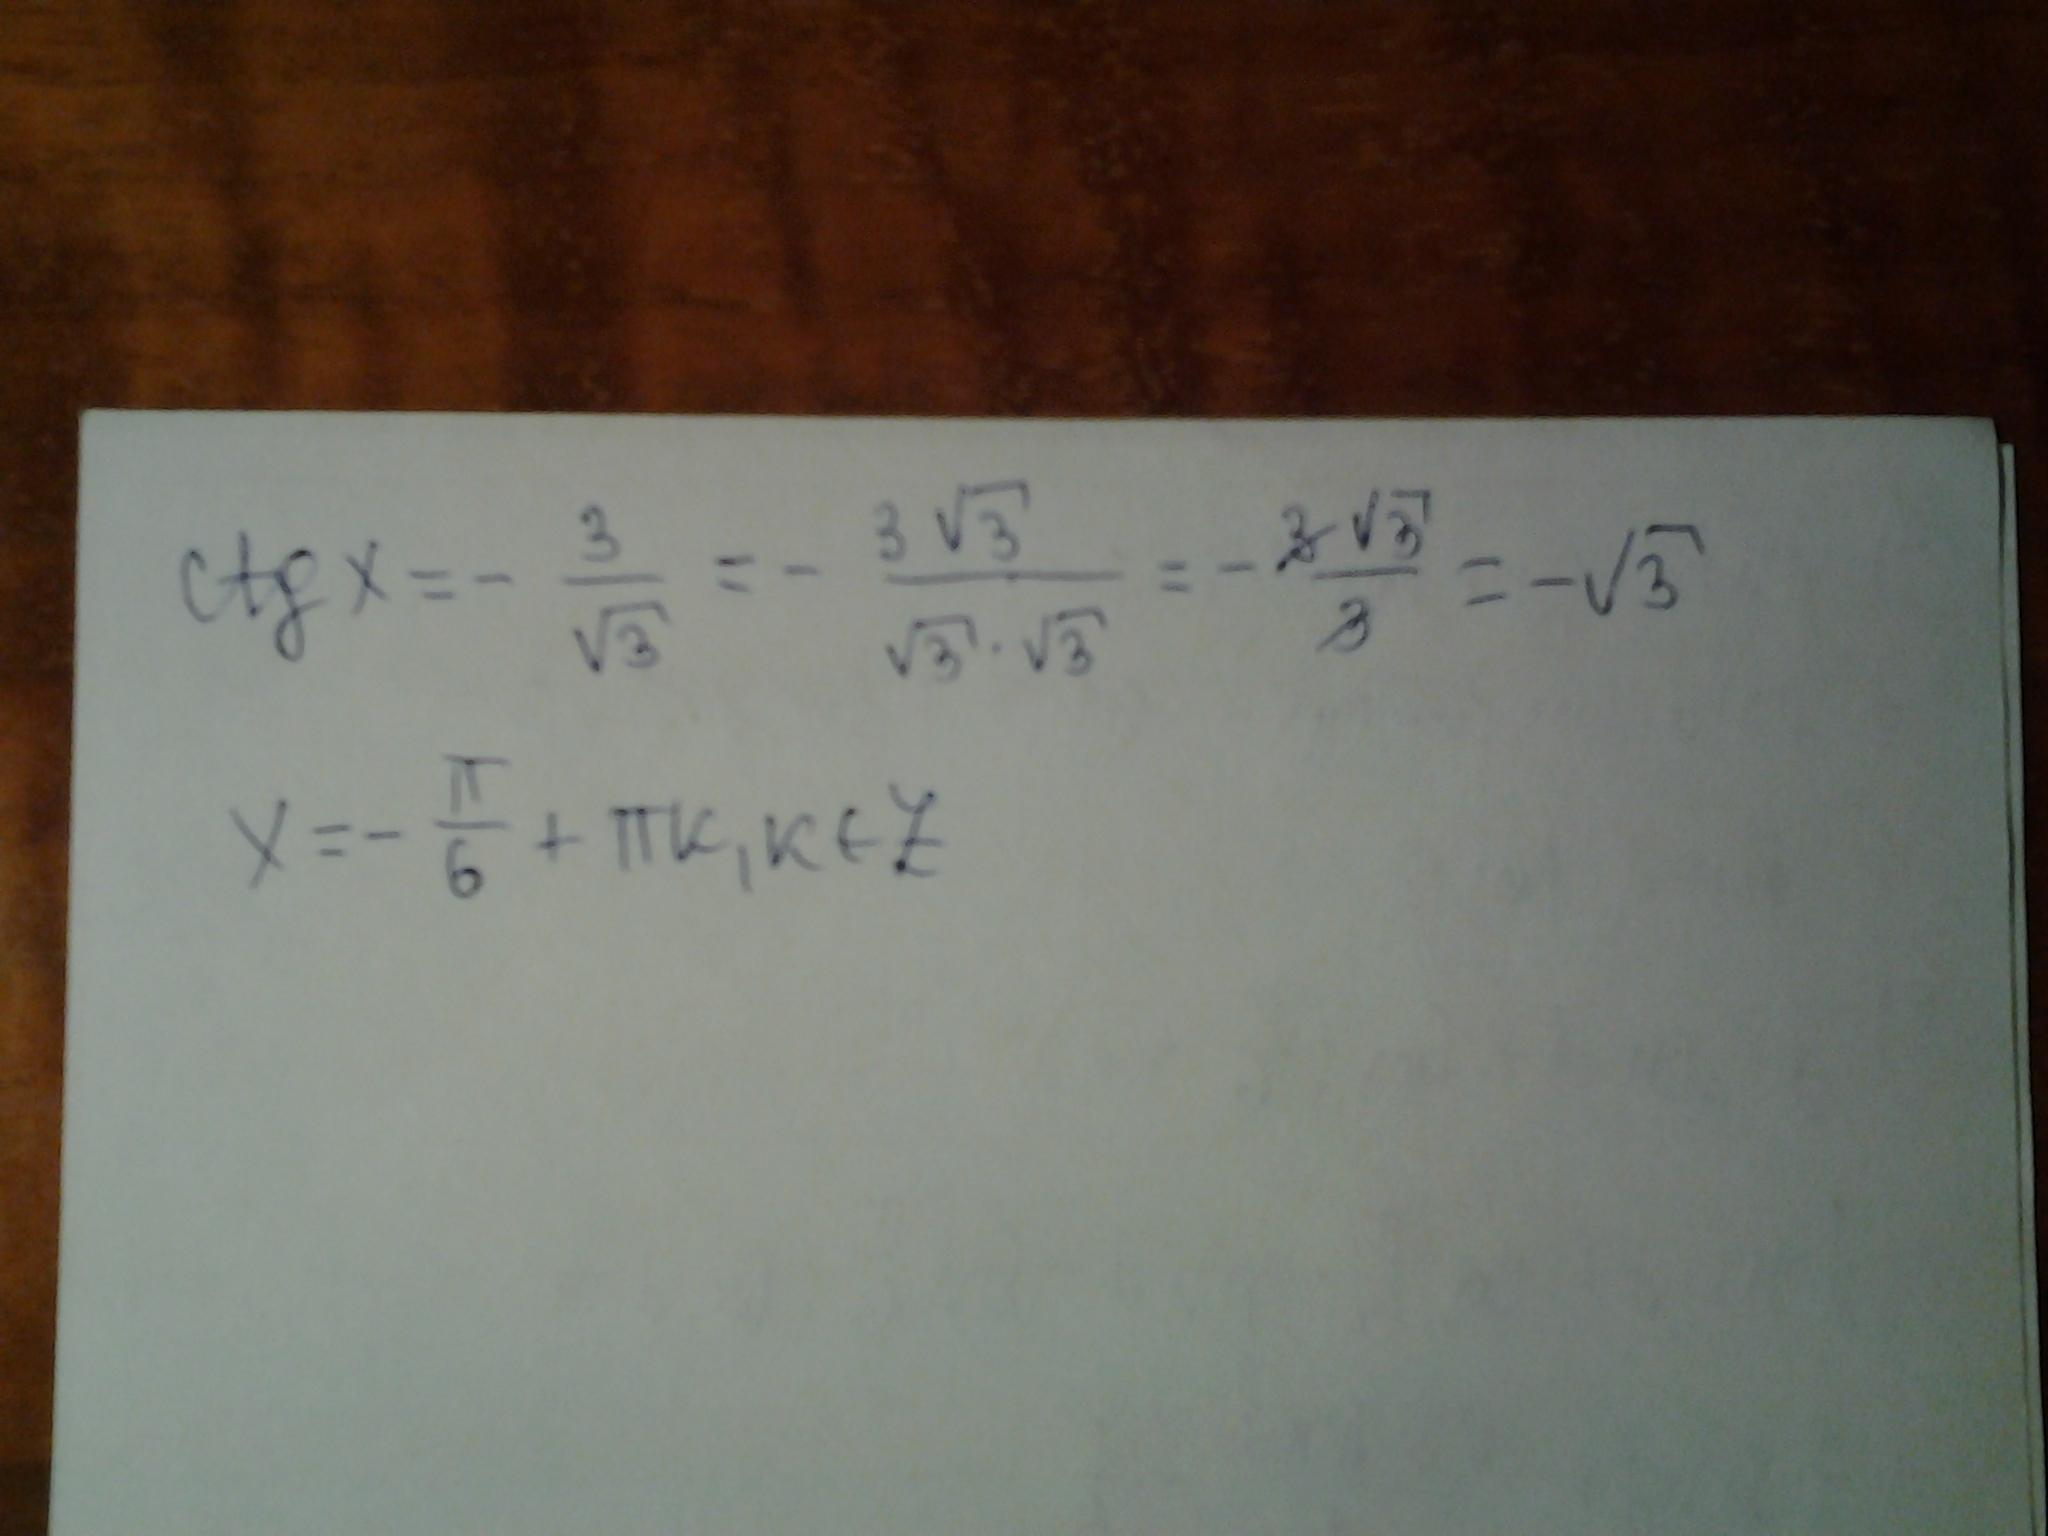 ctg x = - 3/√3 = - 3√3/(√3·√3) = - 3√3/3 = -√3
x = - π/6 + πк, к ∈ Z